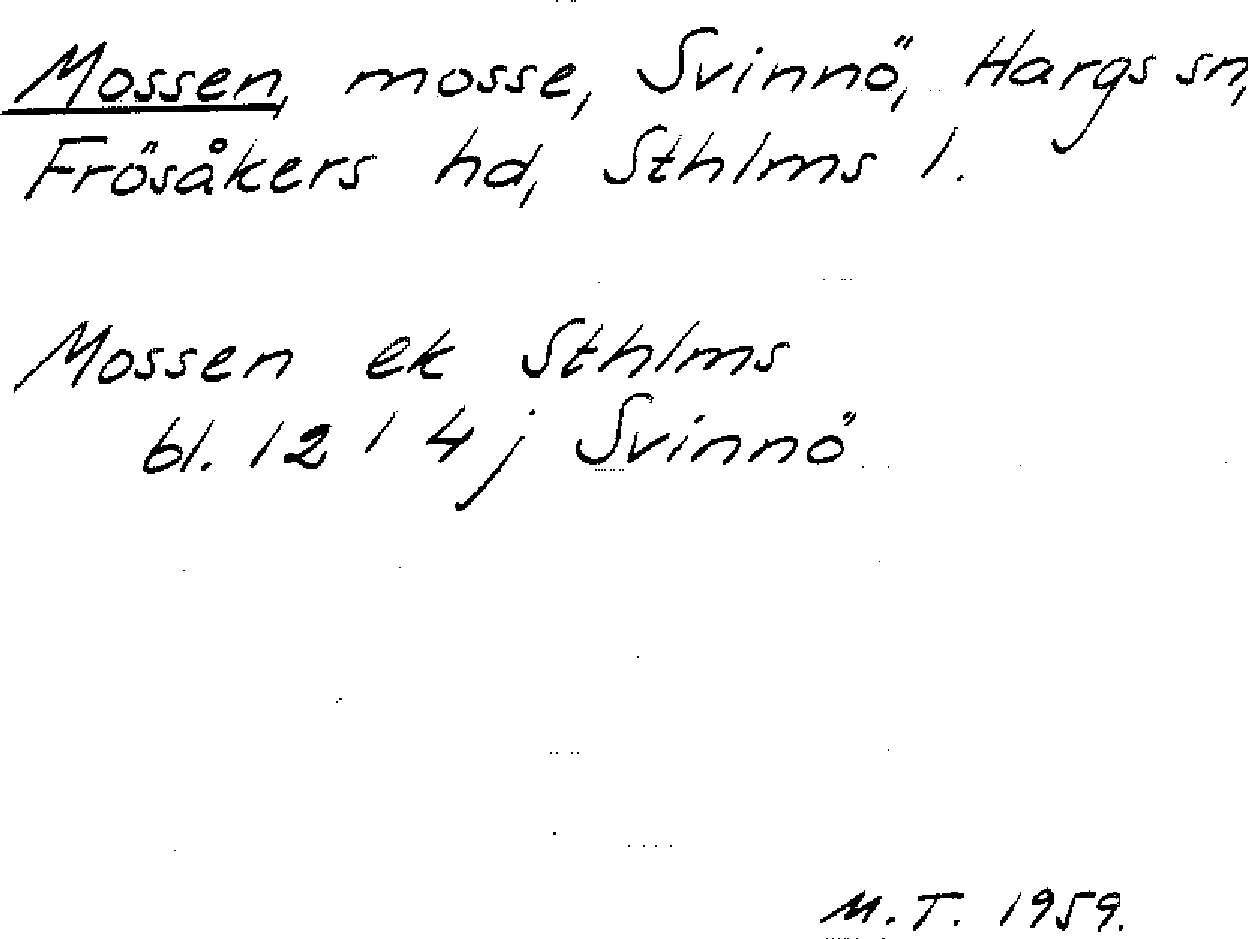 Mossen, mosse, Svinnö, Hargs sn,
Frösåkers hd, Sthlms l.
Mossen ek Sthlms
bl. 12 1 4 j Svinnö
M.T. 1959.